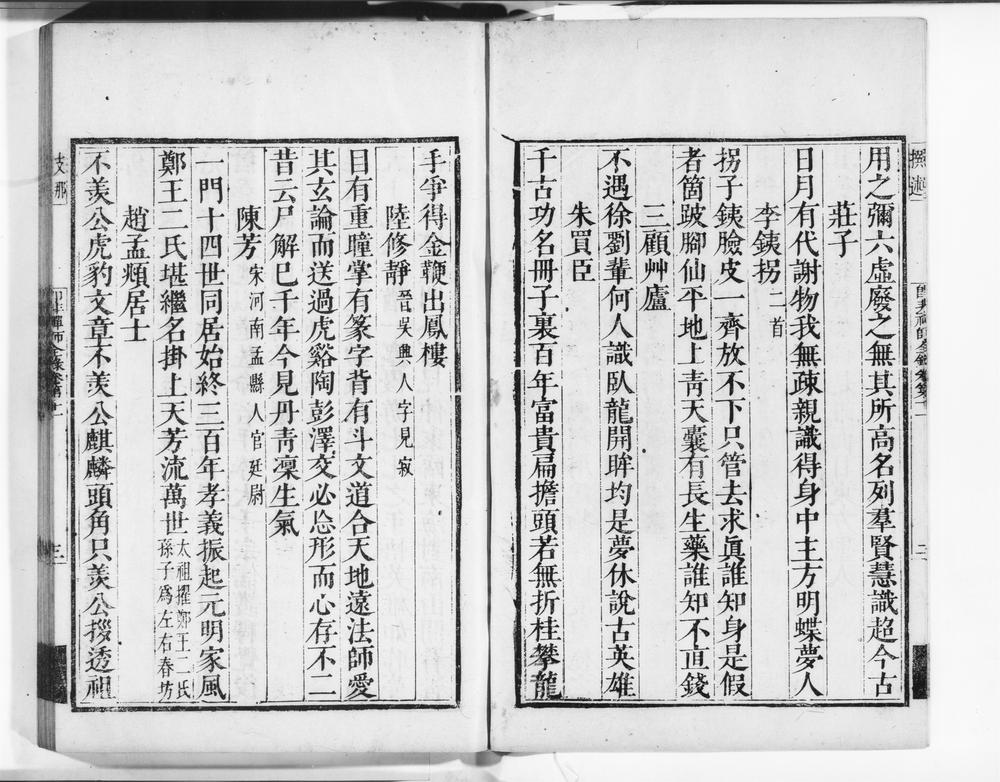 用之彌六虛廢之無其所高名列羣賢慧識超今古
莊子
日月有代謝物我無疎親識得身中主方明蝶夢人
李銕拐二首
拐子銕臉皮一齊放不下只管去求眞誰知身是假
者箇跛腳仙平地上靑天囊有長生藥誰知不直錢
三顧艸廬
不遇徐劉輩何人識臥龍開眸均是夢休說古英雄
朱買臣
千古功名冊子裏百年富貴扁擔頭若無折桂攀龍
手爭得金鞭出鳳樓
陸修靜晉吳興人字見寂
目有重瞳掌有篆字背有斗文道合天地遠法師愛
其玄論而送過虎谿陶彭澤苂必忩形而心存不二
昔云尸解巳千年今見丹靑凜生氣
陳芳宋河南孟縣人官廷尉
一門十四世同居始終三百年孝義振起元明家風
鄭王二氏堪繼名掛上天芳流萬世太祖擢鄭王二氏
孫子爲左右春坊
趙孟頫居士
不羨公虎豹文章不羨公麒麟頭角只羨公拶透祖
支那
三